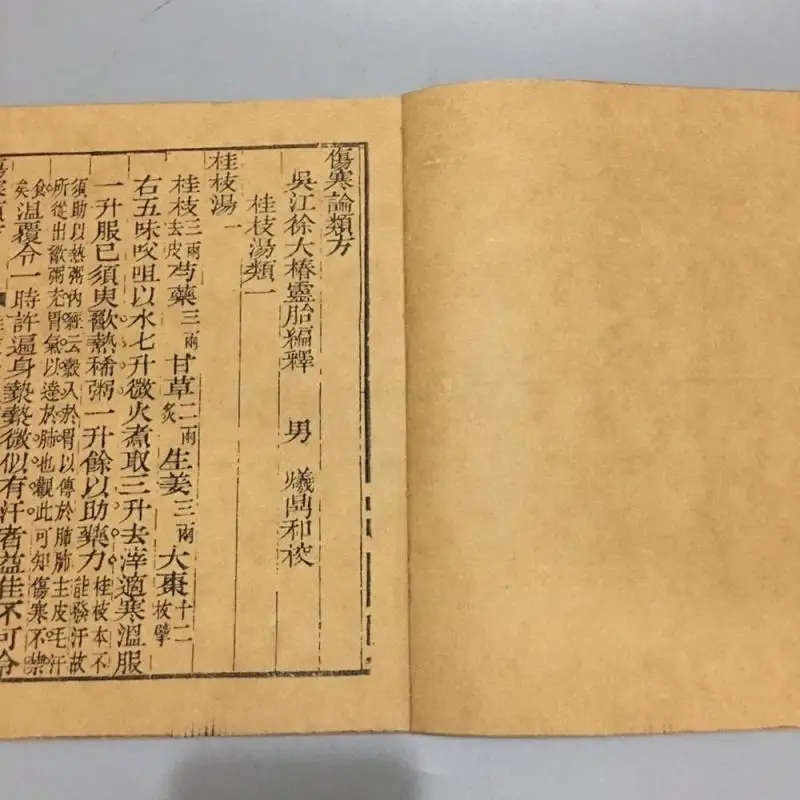 傷寒論類方
吳江徐大椿靈胎編釋 男 爔鼎和校
桂枝湯類一
桂枝湯一
桂枝三兩去皮 芍藥三兩 甘草二兩炙 生姜三兩 大棗十二枚擘
右五味㕮咀以水七升微火煮取三升去滓適寒溫服
一升服已須臾歠熱稀粥一升餘以助藥力桂枝本不能發汗故
須助以熱粥內經云穀入於胃以傳於肺肺主皮毛汗
所從出歠粥充胃氣以達於肺也觀此可知傷寒不禁
食矣溫覆令一時許遍身漐漐微似有汗者益佳不可令